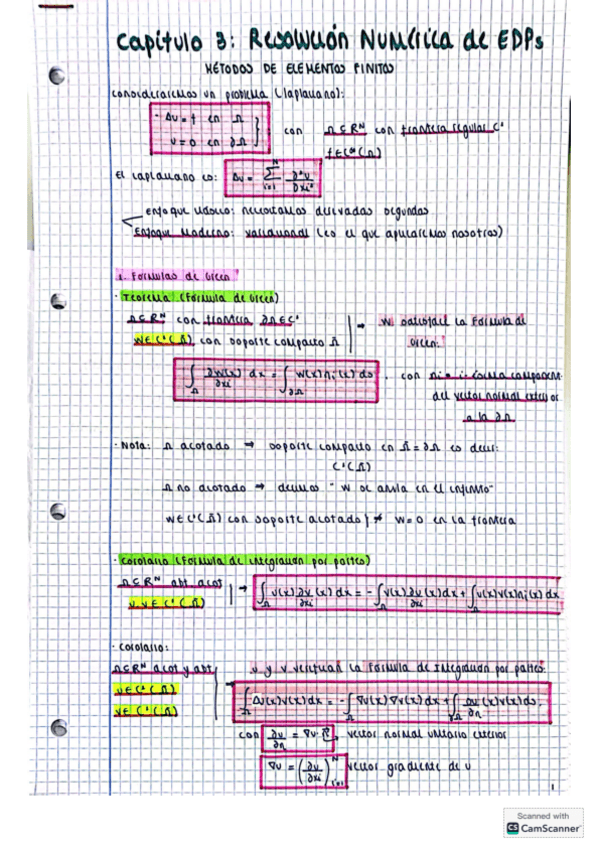 Capítulo 3: Resolución Numérica de EDPs
MÉTODOS DE ELEMENTOS FINITOS
Consideraremos un problema (laplaciano):
- Δu = f en Ω
u = 0 en ∂Ω } con Ω ⊂ R^N con frontera regular C¹
f ∈ C⁰(Ω̄)
El laplaciano es: Δu = Σ_{i=1}^N ∂²u/∂xi²
Enfoque clásico: necesitamos derivadas segundas
Enfoque Moderno: variacional (es el que aplicaremos nosotros)
1. Fórmulas de Green
· Teorema (Fórmula de Green)
Ω ⊂ R^N con frontera ∂Ω ∈ C¹
w ∈ C¹(Ω̄) con soporte compacto Ω̄ | → w satisface la Fórmula de Green:
∫_Ω ∂w(x)/∂xi dx = ∫_∂Ω w(x) ni(x) ds, con ni = i-ésima component
del vector normal exterior
a la ∂Ω
· Nota: Ω acotado ⇒ soporte compacto en Ω̄ = ∂Ω es decir:
C¹(Ω̄)
Ω no acotado ⇒ decimos "w se anula en el infinito"
w ∈ C¹(Ω̄) con soporte acotado } ⇏ w = 0 en la frontera
· Corolario (Fórmula de integración por partes)
Ω ⊂ R^N abt acot
u, v ∈ C¹(Ω̄) | → ∫_Ω u(x) ∂v/∂xi (x) dx = - ∫_Ω v(x) ∂u/∂xi (x) dx + ∫_Ω u(x)v(x)ni(x) dx
· Corolario:
Ω ⊂ R^N acot y abt
u ∈ C²(Ω̄)
v ∈ C¹(Ω̄) | → u y v verifican la Fórmula de Integración por partes:
∫_Ω Δu(x)v(x) dx = - ∫_Ω ∇u(x)∇v(x) dx + ∫_∂Ω ∂u/∂n (x)v(x) ds,
con ∂u/∂n = ∇u·n⃗, vector normal unitario exterior
∇u = (∂u/∂xi)_{i=1}^N vector gradiente de u
1
Scanned with
CS CamScanner